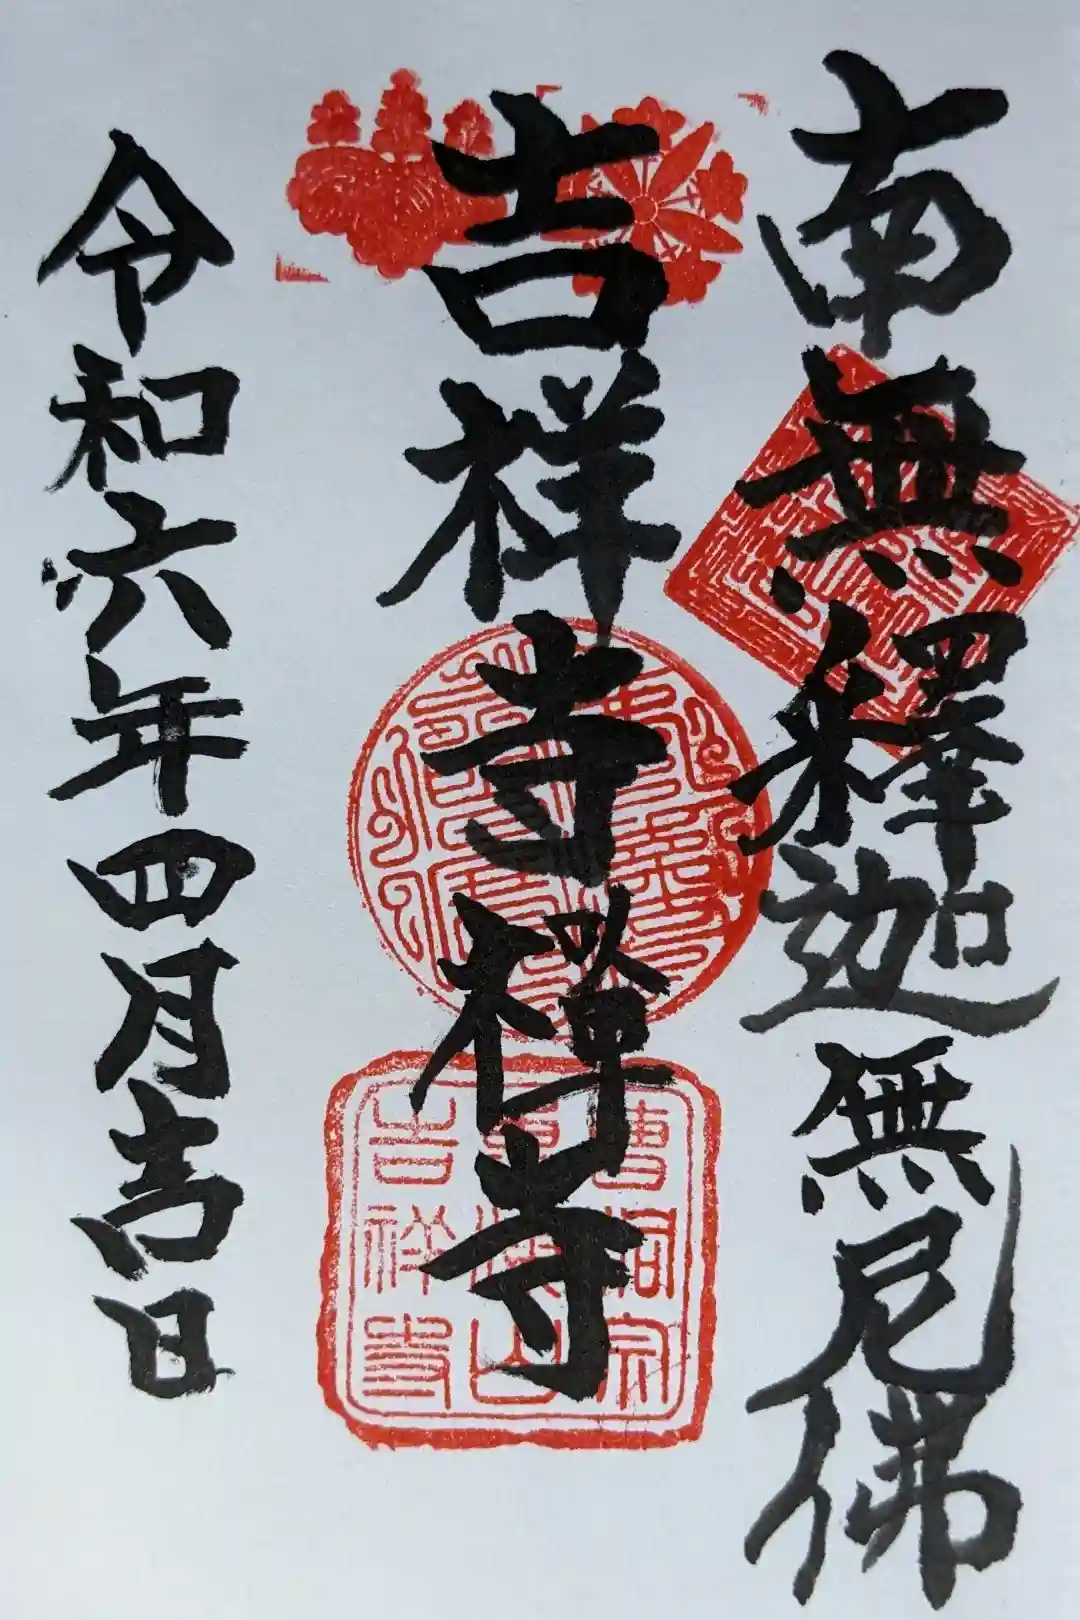 南無釋迦無尼佛
吉祥寺禅寺
令和六年四月吉日
曹洞宗
山
吉祥寺